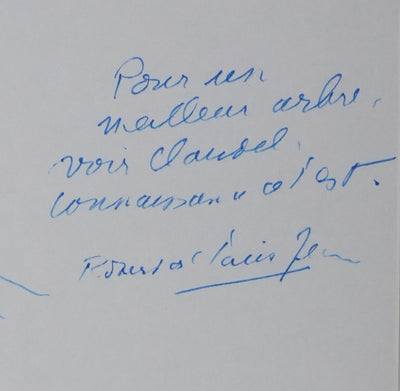 Pour un
meilleur arbre,
voir Claudel.
Connaissance de l'est.